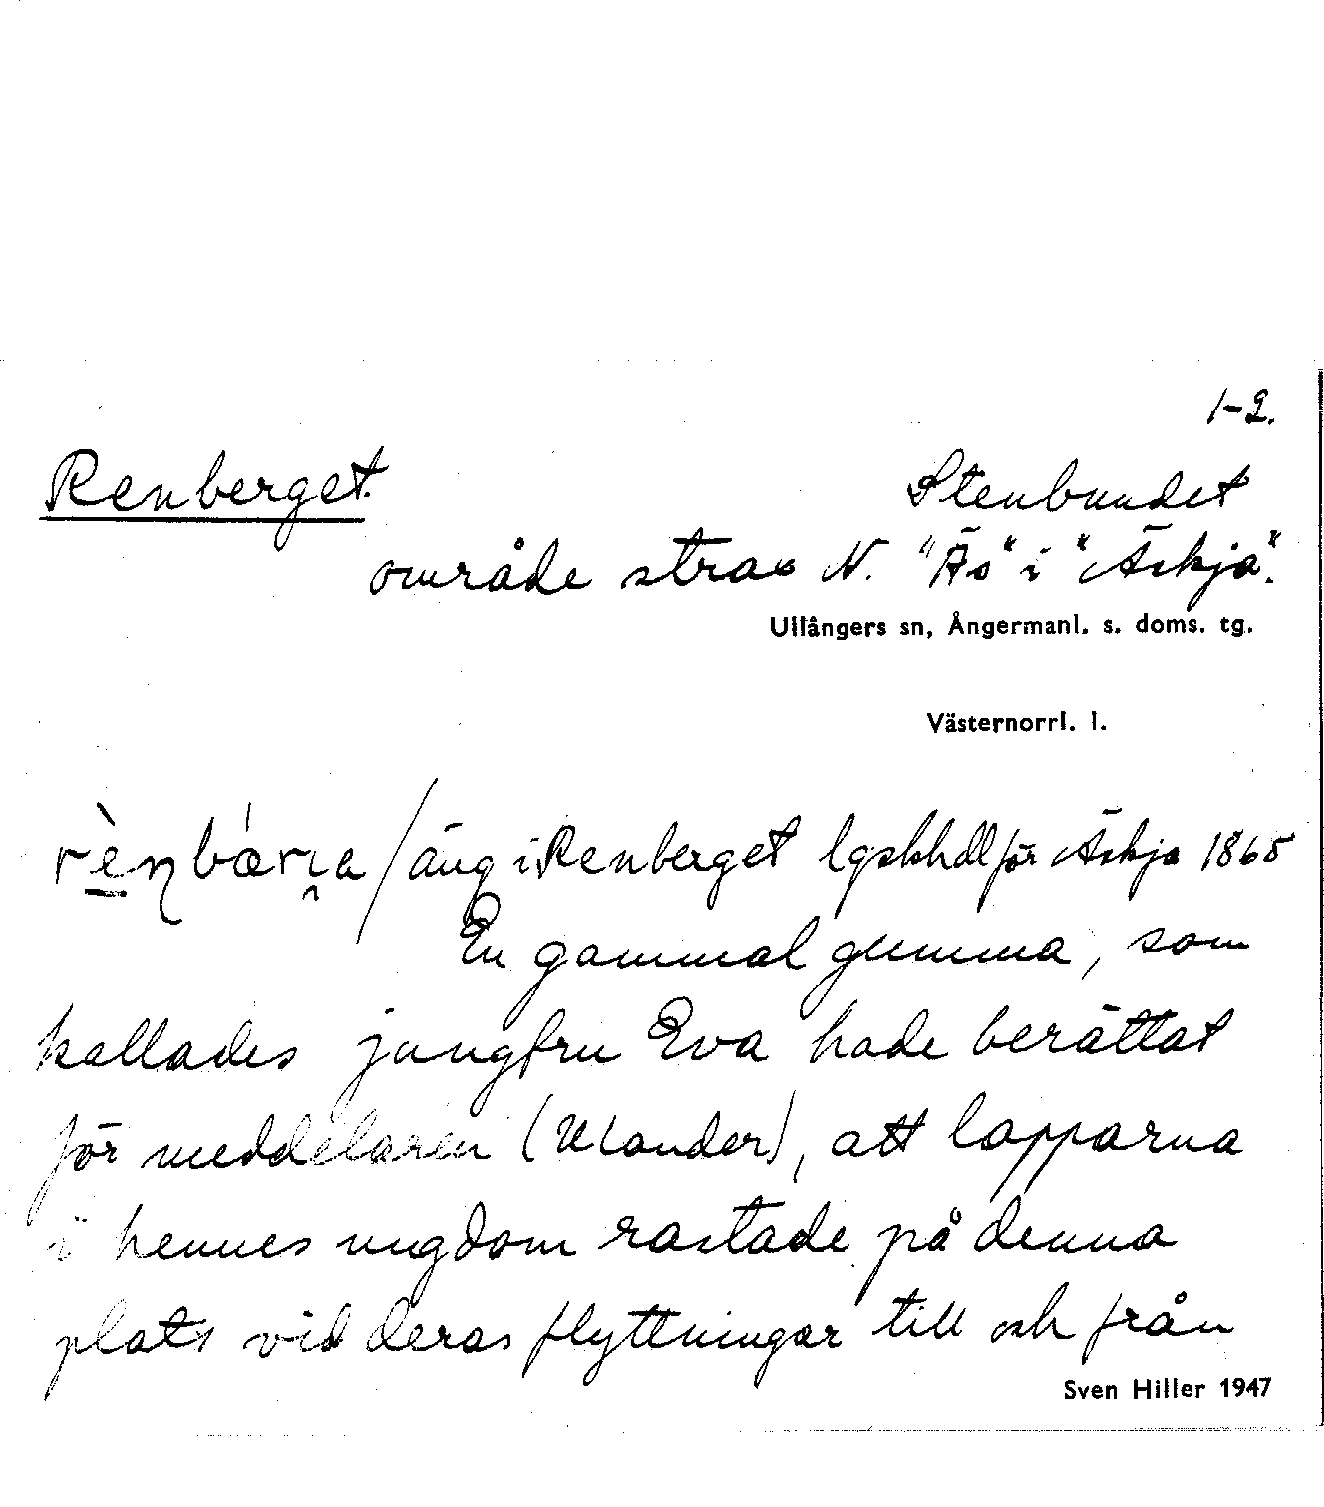 1-2.
Renberget. Stenbundet
område strax N. "Äs" i "Äskja".
Ullångers sn, Ångermanl. s. doms. tg.
Västernorrl. l.
äng i Renberget lgskhdl för Äskja 1865
En gammal gumma, som
kallades jungfru Eva hade berättat
för meddelaren (Ulander), att lapparna
i hennes ungdom rastade på denna
plats vid deras flyttningar till och från
Sven Hiller 1947